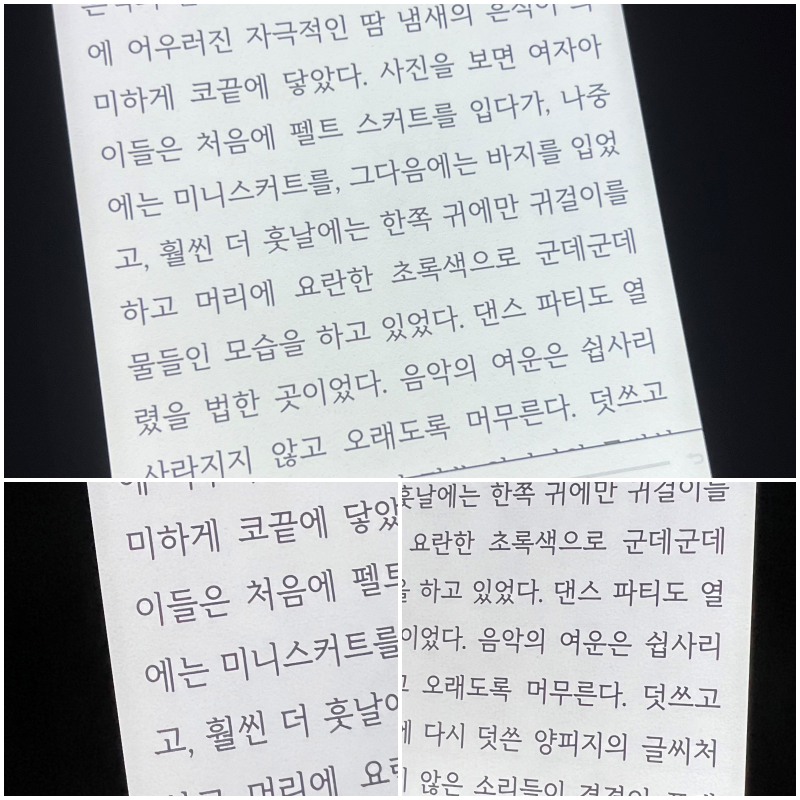 에 어우러진 자극적인 땀 냄새의 흔적이
미하게 코끝에 닿았다. 사진을 보면 여자아
이들은 처음에 펠트 스커트를 입다가, 나중
에는 미니스커트를, 그다음에는 바지를 입었
고, 훨씬 더 훗날에는 한쪽 귀에만 귀걸이를
하고 머리에 요란한 초록색으로 군데군데
물들인 모습을 하고 있었다. 댄스 파티도 열
렸을 법한 곳이었다. 음악의 여운은 쉽사리
사라지지 않고 오래도록 머무른다. 덧쓰고
미하게 코끝에 닿았
이들은 처음에 펠트
에는 미니스커트를
고, 훨씬 더 훗날에
머리에
훗날에는 한쪽 귀에만 귀걸이를
요란한 초록색으로 군데군데
하고 있었다. 댄스 파티도 열
이었다. 음악의 여운은 쉽사리
오래도록 머무른다. 덧쓰고
다시 덧쓴 양피지의 글씨처
않은 소리들이